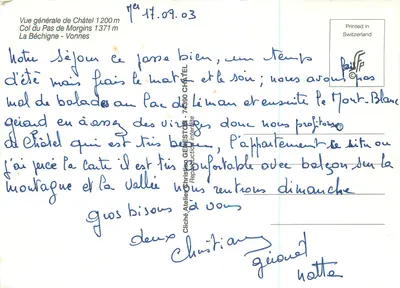 Vue générale de Châtel 1200 m
Col du Pas de Morgins 1371 m
La Béchigne - Vonnes
Mer 17.09.03
Printed in
Switzerland
Notre séjour ce passe bien, un temps
d'été mais frais le matin et le soir; nous avons pas
mal de balade au Lac de Liman et ensuite le Mont-Blanc
gérard en a assez des virages donc nous profitons
de Châtel qui est très beau, l'appartement se situ ou
j'ai percé la carte il est très confortable avec balçon sur la
montagne et la vallée nous rentrons dimanche
gros bisous à vous
deux
Christiane
gérard
Cliché Atelier Christian GENESTOR - 74390 CHATEL
Reproduction interdite